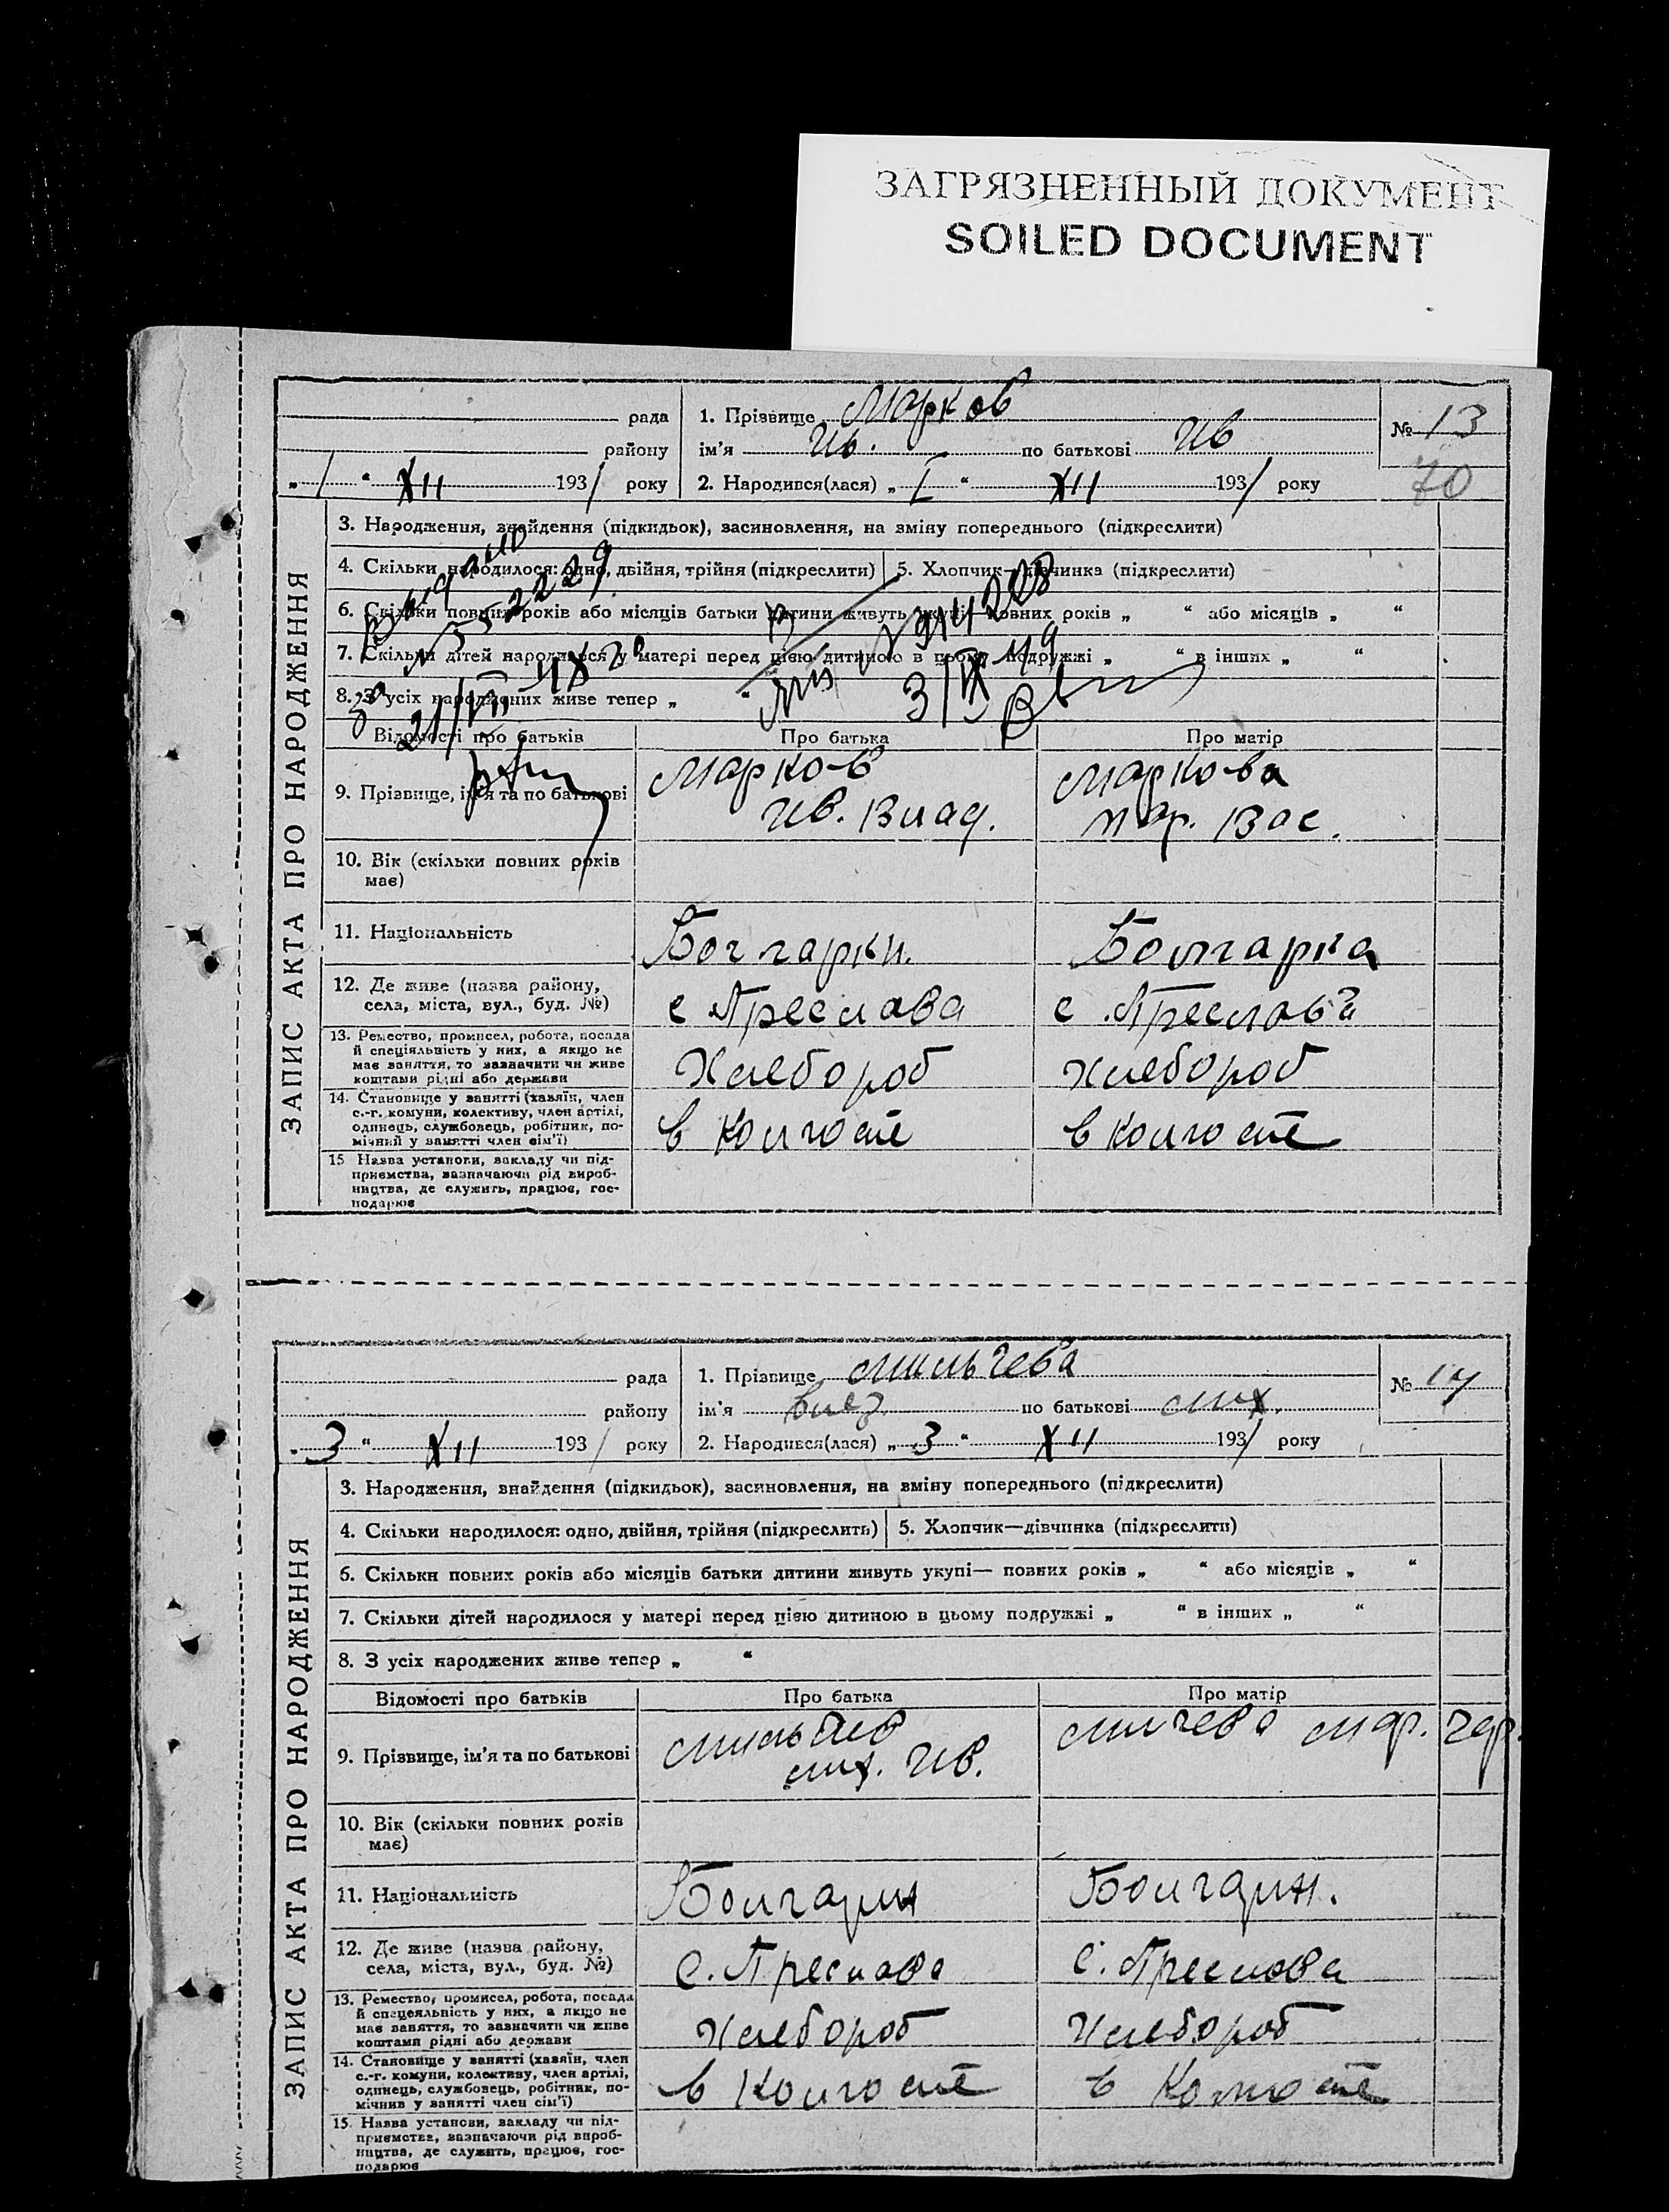 ЗАГРЯЗНЕННЫЙ ДОКУМЕНТ
SOILED DOCUMENT
рада
району
„ 1 “ XII 1931 року
1. Прізвище Марков
ім'я Ив. по батькові Ив
2. Народився(лася) „ 1 “ XII 1931 року
№ 13
70
ЗАПИС АКТА ПРО НАРОДЖЕННЯ
3. Народження, знайдення (підкидьок), засиновлення, на зміну попереднього (підкреслити)
4. Скільки народилося: одно, двійня, трійня (підкреслити)
5. Хлопчик—дівчинка (підкреслити)
6. Скільки повних років або місяців батьки дитини живуть укупі— повних років „ “ або місяців „ “
7. Скільки дітей народилося у матері перед цією дитиною в цьому подружжі „ “ в інших „ “
8. З усіх народжених живе тепер „ “
Відомості про батьків Про батька Про матір
9. Прізвище, ім'я та по батькові
Марков
Ив. Влад.
Маркова
Мар. Вас.
10. Вік (скільки повних років
має)
11. Національність
Болгарки. Болгарка
12. Де живе (назва району,
села, міста, вул., буд. №)
с Преслава с. Преслава
13. Ремество, промисел, робота, посада
й спеціяльність у них, а якщо не
має заняття, то зазначити чи живе
коштами рідні або держави
Хлебороб Хлебороб
14. Становище у занятті (хазяїн, член
с.-г. комуни, колективу, член артілі,
одинець, службовець, робітник, по-
мічний у занятті член сім'ї)
в колгосте в колгосте
15 Назва установи, закладу чи під-
приємства, зазначаючи рід вироб-
ництва, де служить, працює, гос-
подарює
рада
району
„ 3 “ XII 1931 року
1. Прізвище Мильчева
ім'я по батькові Мих.
2. Народився(лася) „ 3 “ XII 1931 року
№ 14
ЗАПИС АКТА ПРО НАРОДЖЕННЯ
3. Народження, знайдення (підкидьок), засиновлення, на зміну попереднього (підкреслити)
4. Скільки народилося: одно, двійня, трійня (підкреслить)
5. Хлопчик—дівчинка (підкреслити)
6. Скільки повних років або місяців батьки дитини живуть укупі— повних років „ “ або місяців „ “
7. Скільки дітей народилося у матері перед цією дитиною в цьому подружжі „ “ в інших „ “
8. З усіх народжених живе тепер „ “
Відомості про батьків Про батька Про матір
9. Прізвище, ім'я та по батькові
Мильчев
Мих. Ив.
Милчева Мар.
10. Вік (скільки повних років
має)
11. Національність
Болгарин Болгарин.
12. Де живе (назва району,
села, міста, вул., буд. №)
С. Преслава С. Преслава
13. Ремество, промисел, робота, посада
й спецеяльність у них, а якщо не
має заняття, то зазначити чи живе
коштами рідні або держави
Хлебороб Хлебороб
14. Становище у занятті (хазяїн, член
с.-г. комуни, колективу, член артілі,
одинець, службовець, робітник, по-
мічнив у занятті член сім'ї)
в Колгосте в Колгосте
15. Назва установи, закладу чи під-
приємства, зазначаючи рід вироб-
ництва, де служить, працює, гос-
подарює